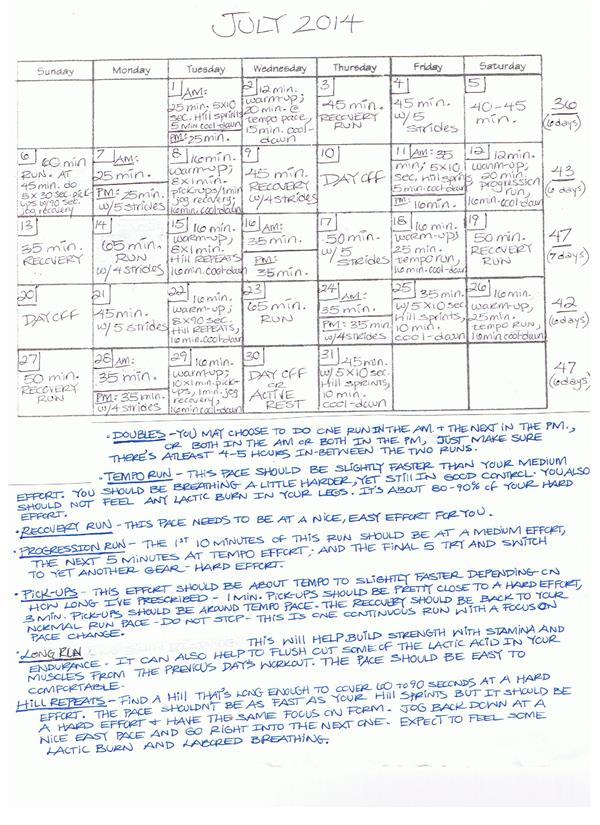 JULY 2014
Sunday Monday Tuesday Wednesday Thursday Friday Saturday
1 AM:
25 min. 5x10
sec. Hill sprints
5 min cool-down
PM: 25 min.
2 12 min.
warm-up;
20 min. @
tempo pace,
15 min. cool-
down
3
45 min.
RECOVERY
RUN
4
45 min.
w/5
STRIDES
5
40-45
min.
36
(6 days)
6 60 min
RUN. AT
45 min. do
5 x 30 sec. pick-
ups w/90 sec.
jog recovery
7 AM:
25 min.
PM: 25 min.
w/5 strides
8 16 min.
warm-up;
8x1 min.
pick-ups/1 min
jog recovery;
16 min. cool-down
9
45 min.
RECOVERY
w/4 strides
10
DAY OFF
11 AM: 35
min; 5x10
sec. Hill sprints
5 min. cool-down
PM: 16 min.
12 12 min.
warm-up;
20 min.
progression
run,
16 min. cool-down
43
(6 days)
13
35 min.
RECOVERY
14
65 min.
RUN
w/4 strides
15 16 min.
warm-up;
8x1 min.
Hill REPEATS
16 min. cool-down
16 AM:
35 min.
PM:
35 min.
17
50 min.
w/5
STRIDES
18 16 min.
warm-up;
25 min.
tempo run,
16 min. cool-down
19
50 min.
RECOVERY
RUN
47
(7 days)
20
DAY OFF
21
45 min.
w/5 strides
22 16 min.
warm-up;
8x90 sec.
Hill REPEATS,
16 min. cool-down
23
65 min.
RUN
24 AM:
35 min.
PM: 35 min.
w/4 strides
25 35 min.
w/5x10 sec
Hill sprints,
10 min.
cool-down
26 16 min.
warm-up,
25 min.
tempo run,
16 min. cool-down
42
(6 days)
27
50 min.
RECOVERY
RUN
28 AM:
35 min.
PM: 35 min.
w/4 strides
29 16 min.
warm-up;
10x1 min. pick-
ups, 1 min. jog
recovery;
16 min cool-down
30
DAY OFF
OR
ACTIVE
REST
31
45 min.
w/5x10 sec
Hill sprints,
10 min.
cool-down
47
(6 days)
• DOUBLES - YOU MAY CHOOSE TO DO ONE RUN IN THE AM. + THE NEXT IN THE PM.,
OR BOTH IN THE AM OR BOTH IN THE PM, JUST MAKE SURE
THERE'S ATLEAST 4-5 HOURS IN-BETWEEN THE TWO RUNS.
• TEMPO RUN - THIS PACE SHOULD BE SLIGHTLY FASTER THAN YOUR MEDIUM
EFFORT. YOU SHOULD BE BREATHING A LITTLE HARDER, YET STILL IN GOOD CONTROL. YOU ALSO
SHOULD NOT FEEL ANY LACTIC BURN IN YOUR LEGS. IT'S ABOUT 80-90% OF YOUR HARD
EFFORT.
• RECOVERY RUN - THIS PACE NEEDS TO BE AT A NICE, EASY EFFORT FOR YOU.
• PROGRESSION RUN - THE 1ST 10 MINUTES OF THIS RUN SHOULD BE AT A MEDIUM EFFORT,
THE NEXT 5 MINUTES AT TEMPO EFFORT, AND THE FINAL 5 TRY AND SWITCH
TO YET ANOTHER GEAR - HARD EFFORT.
• PICK-UPS - THIS EFFORT SHOULD BE ABOUT TEMPO TO SLIGHTLY FASTER DEPENDING ON
HOW LONG I'VE PRESCRIBED - 1 MIN. PICK-UPS SHOULD BE PRETTY CLOSE TO A HARD EFFORT,
3 MIN. PICK-UPS SHOULD BE AROUND TEMPO PACE. THE RECOVERY SHOULD BE BACK TO YOUR
NORMAL RUN PACE - DO NOT STOP - THIS IS ONE CONTINUOUS RUN WITH A FOCUS ON
PACE CHANGE.
• LONG RUN THIS WILL HELP BUILD STRENGTH WITH STAMINA AND
ENDURANCE. IT CAN ALSO HELP TO FLUSH OUT SOME OF THE LACTIC ACID IN YOUR
MUSCLES FROM THE PREVIOUS DAYS WORKOUT. THE PACE SHOULD BE EASY TO
COMFORTABLE.
HILL REPEATS - FIND A HILL THAT'S LONG ENOUGH TO COVER 60 TO 90 SECONDS AT A HARD
EFFORT. THE PACE SHOULDN'T BE AS FAST AS YOUR HILL SPRINTS BUT IT SHOULD BE
A HARD EFFORT + HAVE THE SAME FOCUS ON FORM. JOG BACK DOWN AT A
NICE EASY PACE AND GO RIGHT INTO THE NEXT ONE. EXPECT TO FEEL SOME
LACTIC BURN AND LABORED BREATHING.